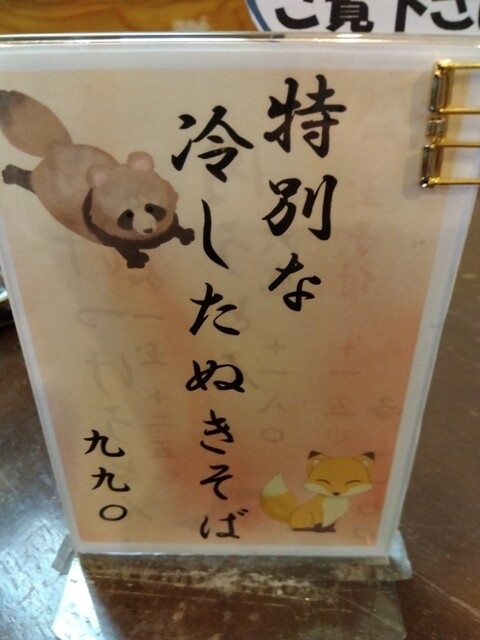 ご覧下さい
特別な
冷したぬきそば
九九〇